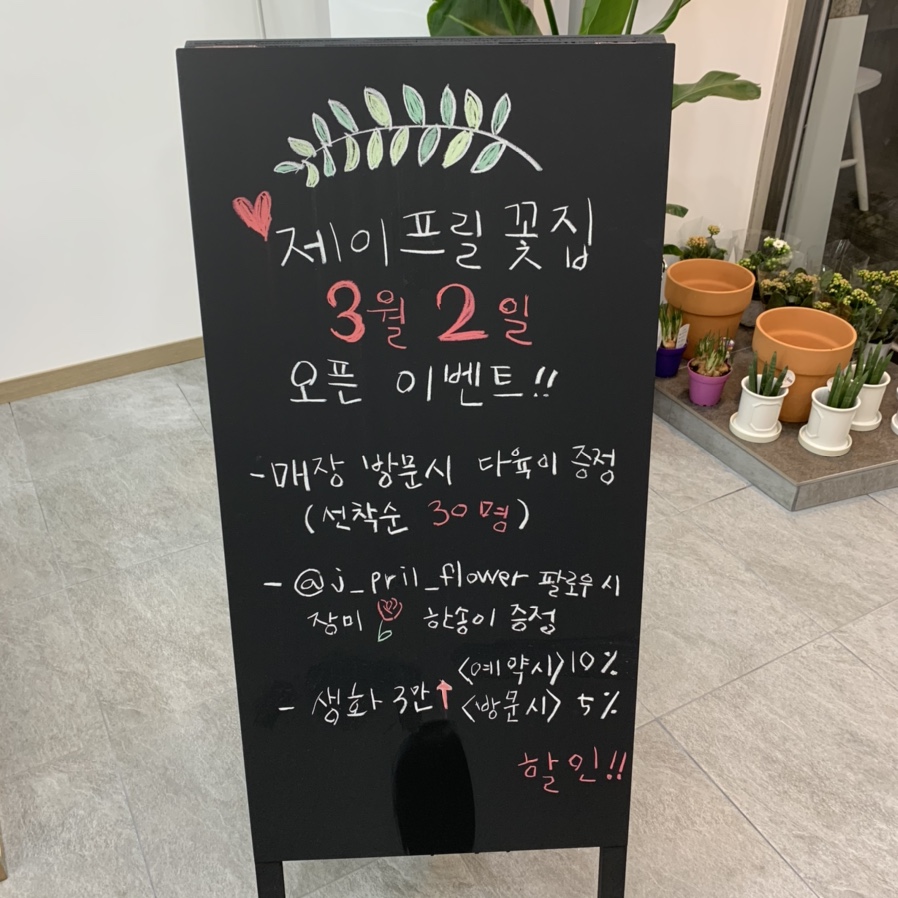 제이프릴 꽃집
3월 2일
오픈 이벤트!!
-매장 방문시 다육이 증정
(선착순 30명)
- @j_pril_flower 팔로우 시
장미 한송이 증정
- 생화 3만↑ <예약시> 10%
<방문시> 5%
할인!!